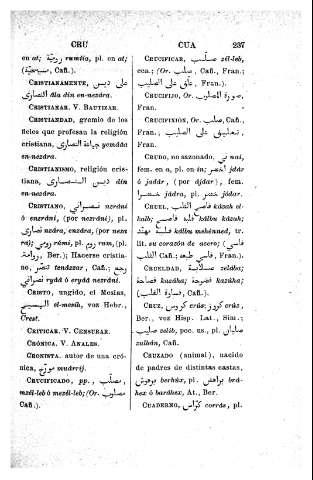 CRU
CUA
237
en at; رومية rumíia, pl. en at;
(مسيحية, Cañ.).
CRISTIANAMENTE, على ديس
النصارى âla din en-nezára.
CRISTIANAR. V. BAUTIZAR.
CRISTIANDAD, gremio de los
fieles que profesan la religión
cristiana, جماعة النصارى yemáâa
en-nezára.
CRISTIANISMO, religión cris-
tiana, دين النصارى din
en-nezára.
CRISTIANO, نصرانى nezráni
ó enzráni, (por nezráni), pl.
نصارى nezára, enzára, (por neza
ra); رومى rúmi, pl. روم rum, (pl.
روامة, Ber.); Hacerse cristia-
no, تنصر tenádzar, Cañ.; رجع
نصرانى ryâd ó eryâd nezráni.
CRISTO, ungido, el Mesías,
المسيح el-mesíh, voz Hebr.,
Crest.
CRITICAR. V. CENSURAR.
CRÓNICA, V. ANALES.
CRONISTA, autor de una cró-
nica, مورخ muárrij.
CRUCIFICADO, pp., مصلب
mzél-leb ó mezél-leb; (Or. مصلوب
Cañ.).
CRUCIFICAR, صلب zél-leb,
cca.; (Or. صلب, Cañ., Fran.;
علق على الصليب, Fran.).
CRUCIFIJO, Or. صورة المصلوب,
Fran.
CRUCIFIXIÓN, Or. صلب, Cañ.,
Fran.; تعليق على الصليب,
Fran.
CRUDO, no sazonado, نى nai,
fem. en a, pl. en in; اخضر jdár
ó jadár, (por ájdar), fem.
خضرا jádra, pl. خضر jódar.
CRUEL, قاصح القلب kásah el-
kalb; قلبه قاصح kálbu kásah;
قلبه مهند kálbu mehénned, tr.
lit. su corazón de acero; (قاسى
القلب Cañ.; قاسى طبعه, Fran.).
CRUELDAD, صلابة zelába;
قصاحة kasáha; قصوحة kazúha;
(قساوة القلب, Cañ.).
CRUZ, كروس crus; كروز crúz,
Ber., voz Hisp. Lat., Sim.;
صليب zelíb, poc. us., pl. صلبان
zulbán, Cañ.
CRUZADO (animal), nacido
de padres de distintas castas,
برهوش berhúx, pl. براهش brá-
hex ó baráhex, At., Ber.
CUADERNO, كراس corrás, pl.